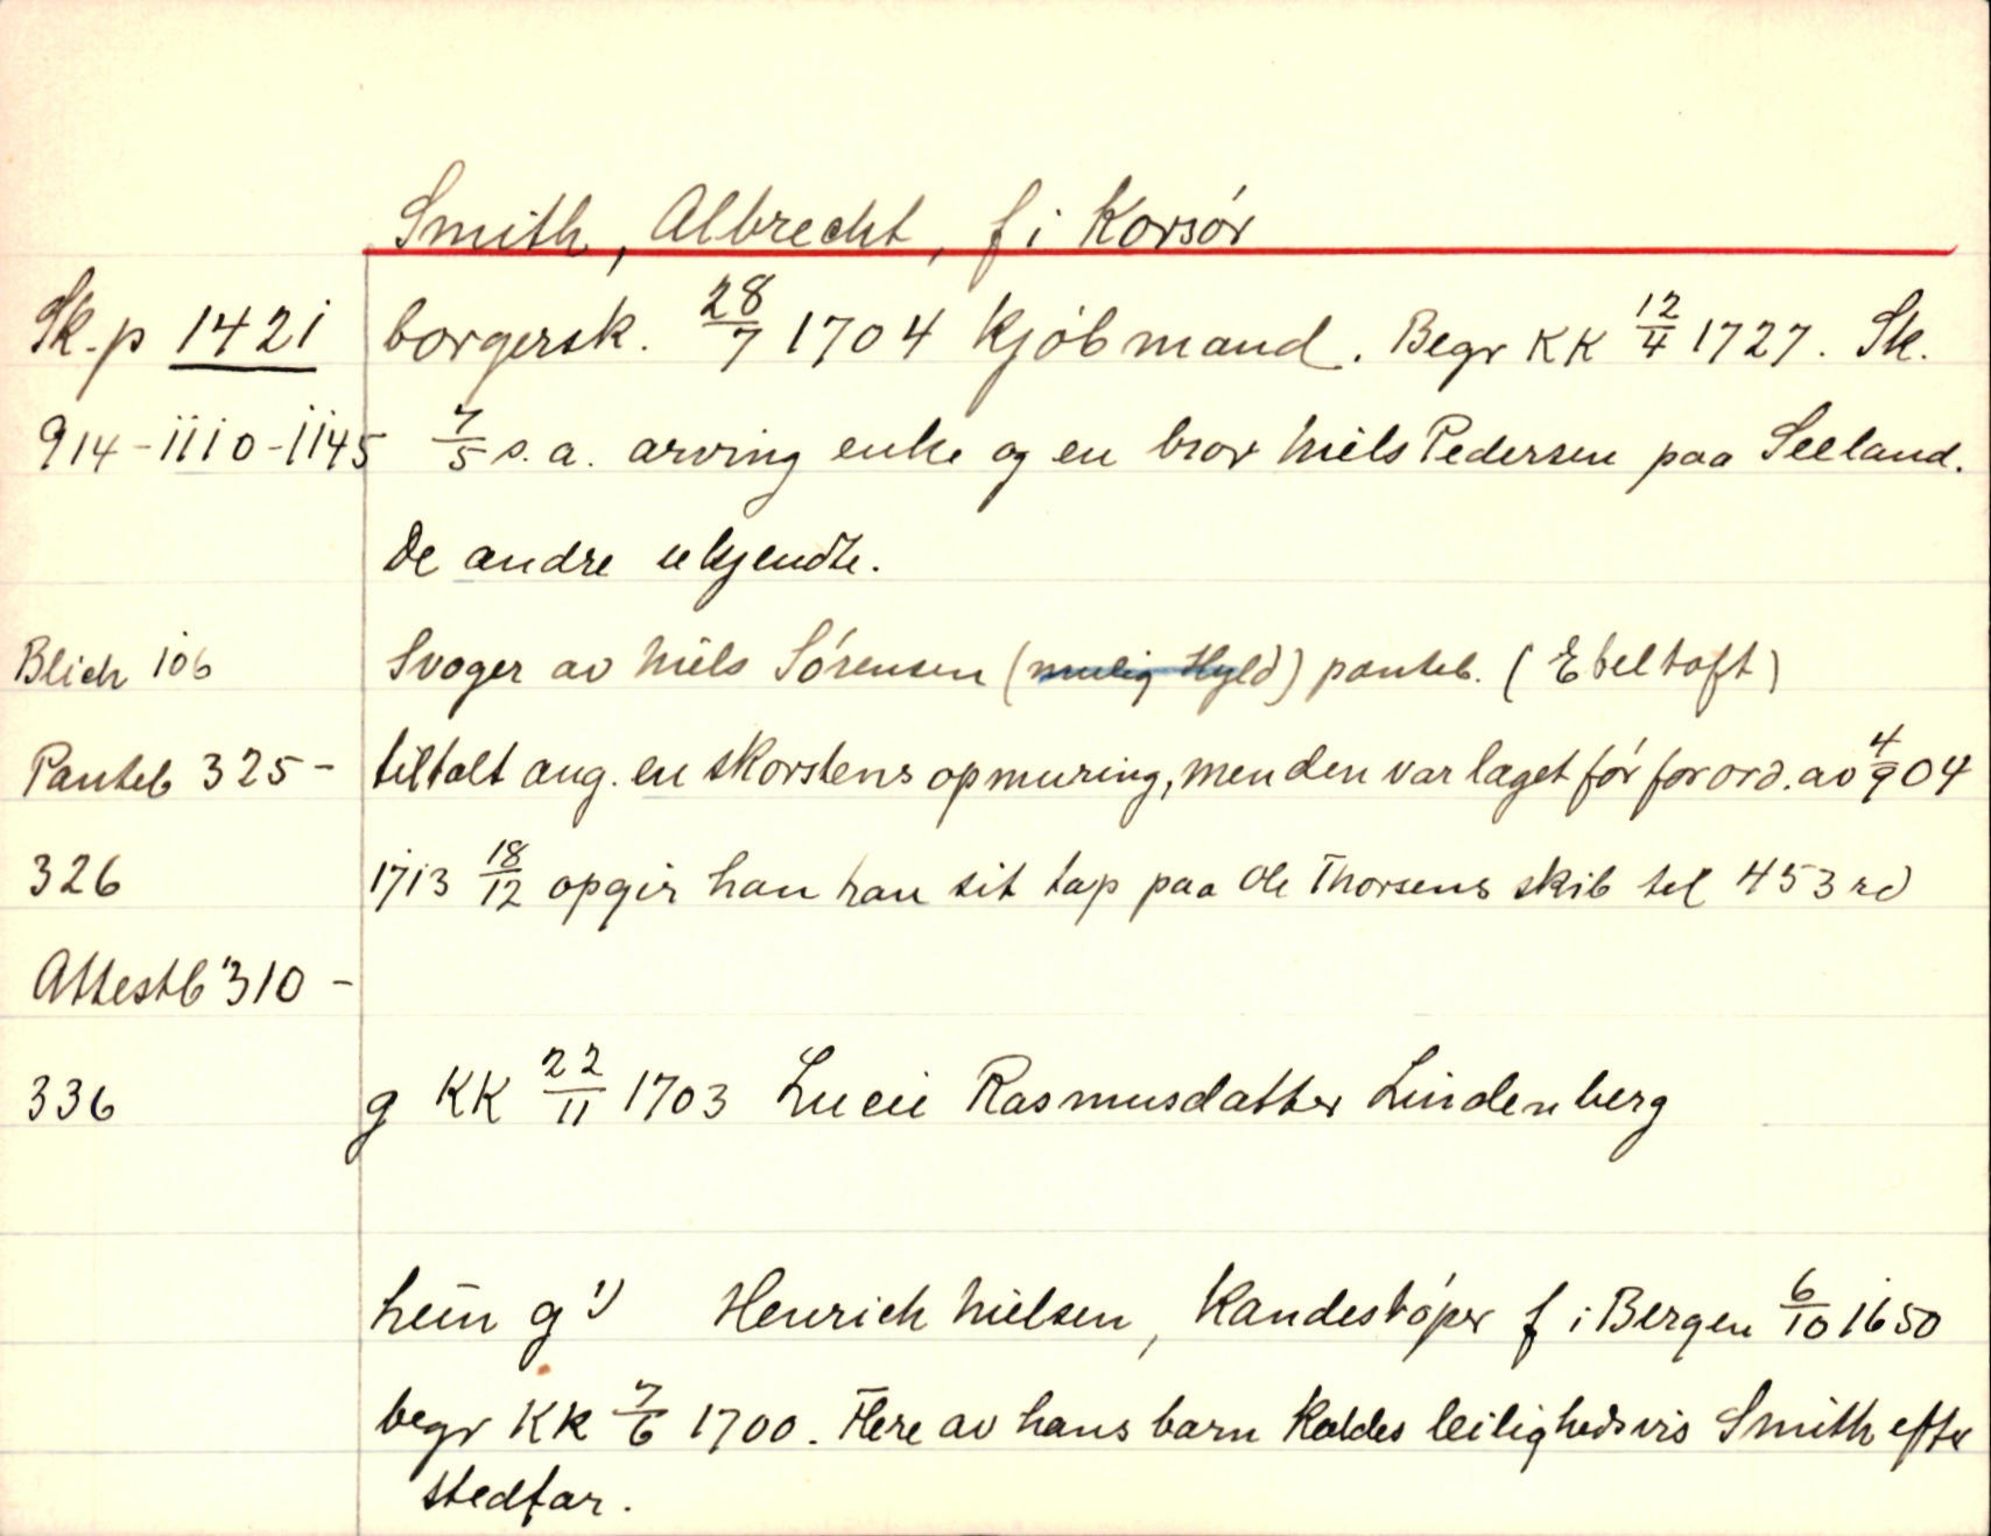 Smith, Albrecht, f i Korsór
Sk. p 1421 borgersk. 28/7 1704 Kjóbmand. Begr KK 12/4 1727. Sk.
914-1110-1145 7/5 s.a. arving enke og en bror Niels Pedersen paa Seeland.
De andre ukjendte.
Blich 106 Svoger av Niels Sórensen (mulig Hyld) panteb. (Ebeltoft)
Panteb 325- tiltalt ang. en skorstens opmuring, men den var laget fór forord. av 4/9 04
326 1713 18/12 opgir han han sit tap paa Ole Thorsens skib til 453 rd
Attestb 310-
336 g KK 22/11 1703 Lucie Rasmusdatter Lindenberg
hun g 1) Henrich Nielsen, Kandestóper f i Bergen 6/10 1650
begr KK 7/6 1700. Flere av hans barn kaldes leilighedsvis Smith efter
stedfar.